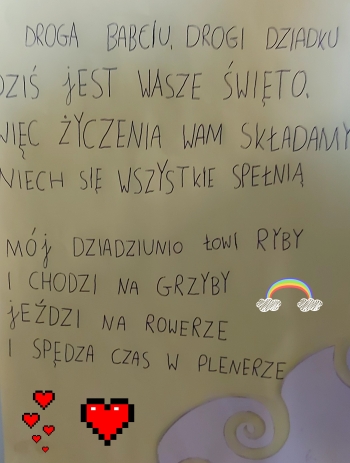 DROGA BABCIU, DROGI DZIADKU
DZIŚ jEST WASZE ŚWIĘTO.
WIĘC ŻYCZENIA WAM SKŁADAMY
NIECH SIĘ WSZYSTKIE SPEŁNIĄ
MÓj DZIADZIUNIO ŁOWI RYBY
I CHODZI NA GRZYBY
jEŹDZI NA ROWERZE
I SPĘDZA CZAS W PLENERZE